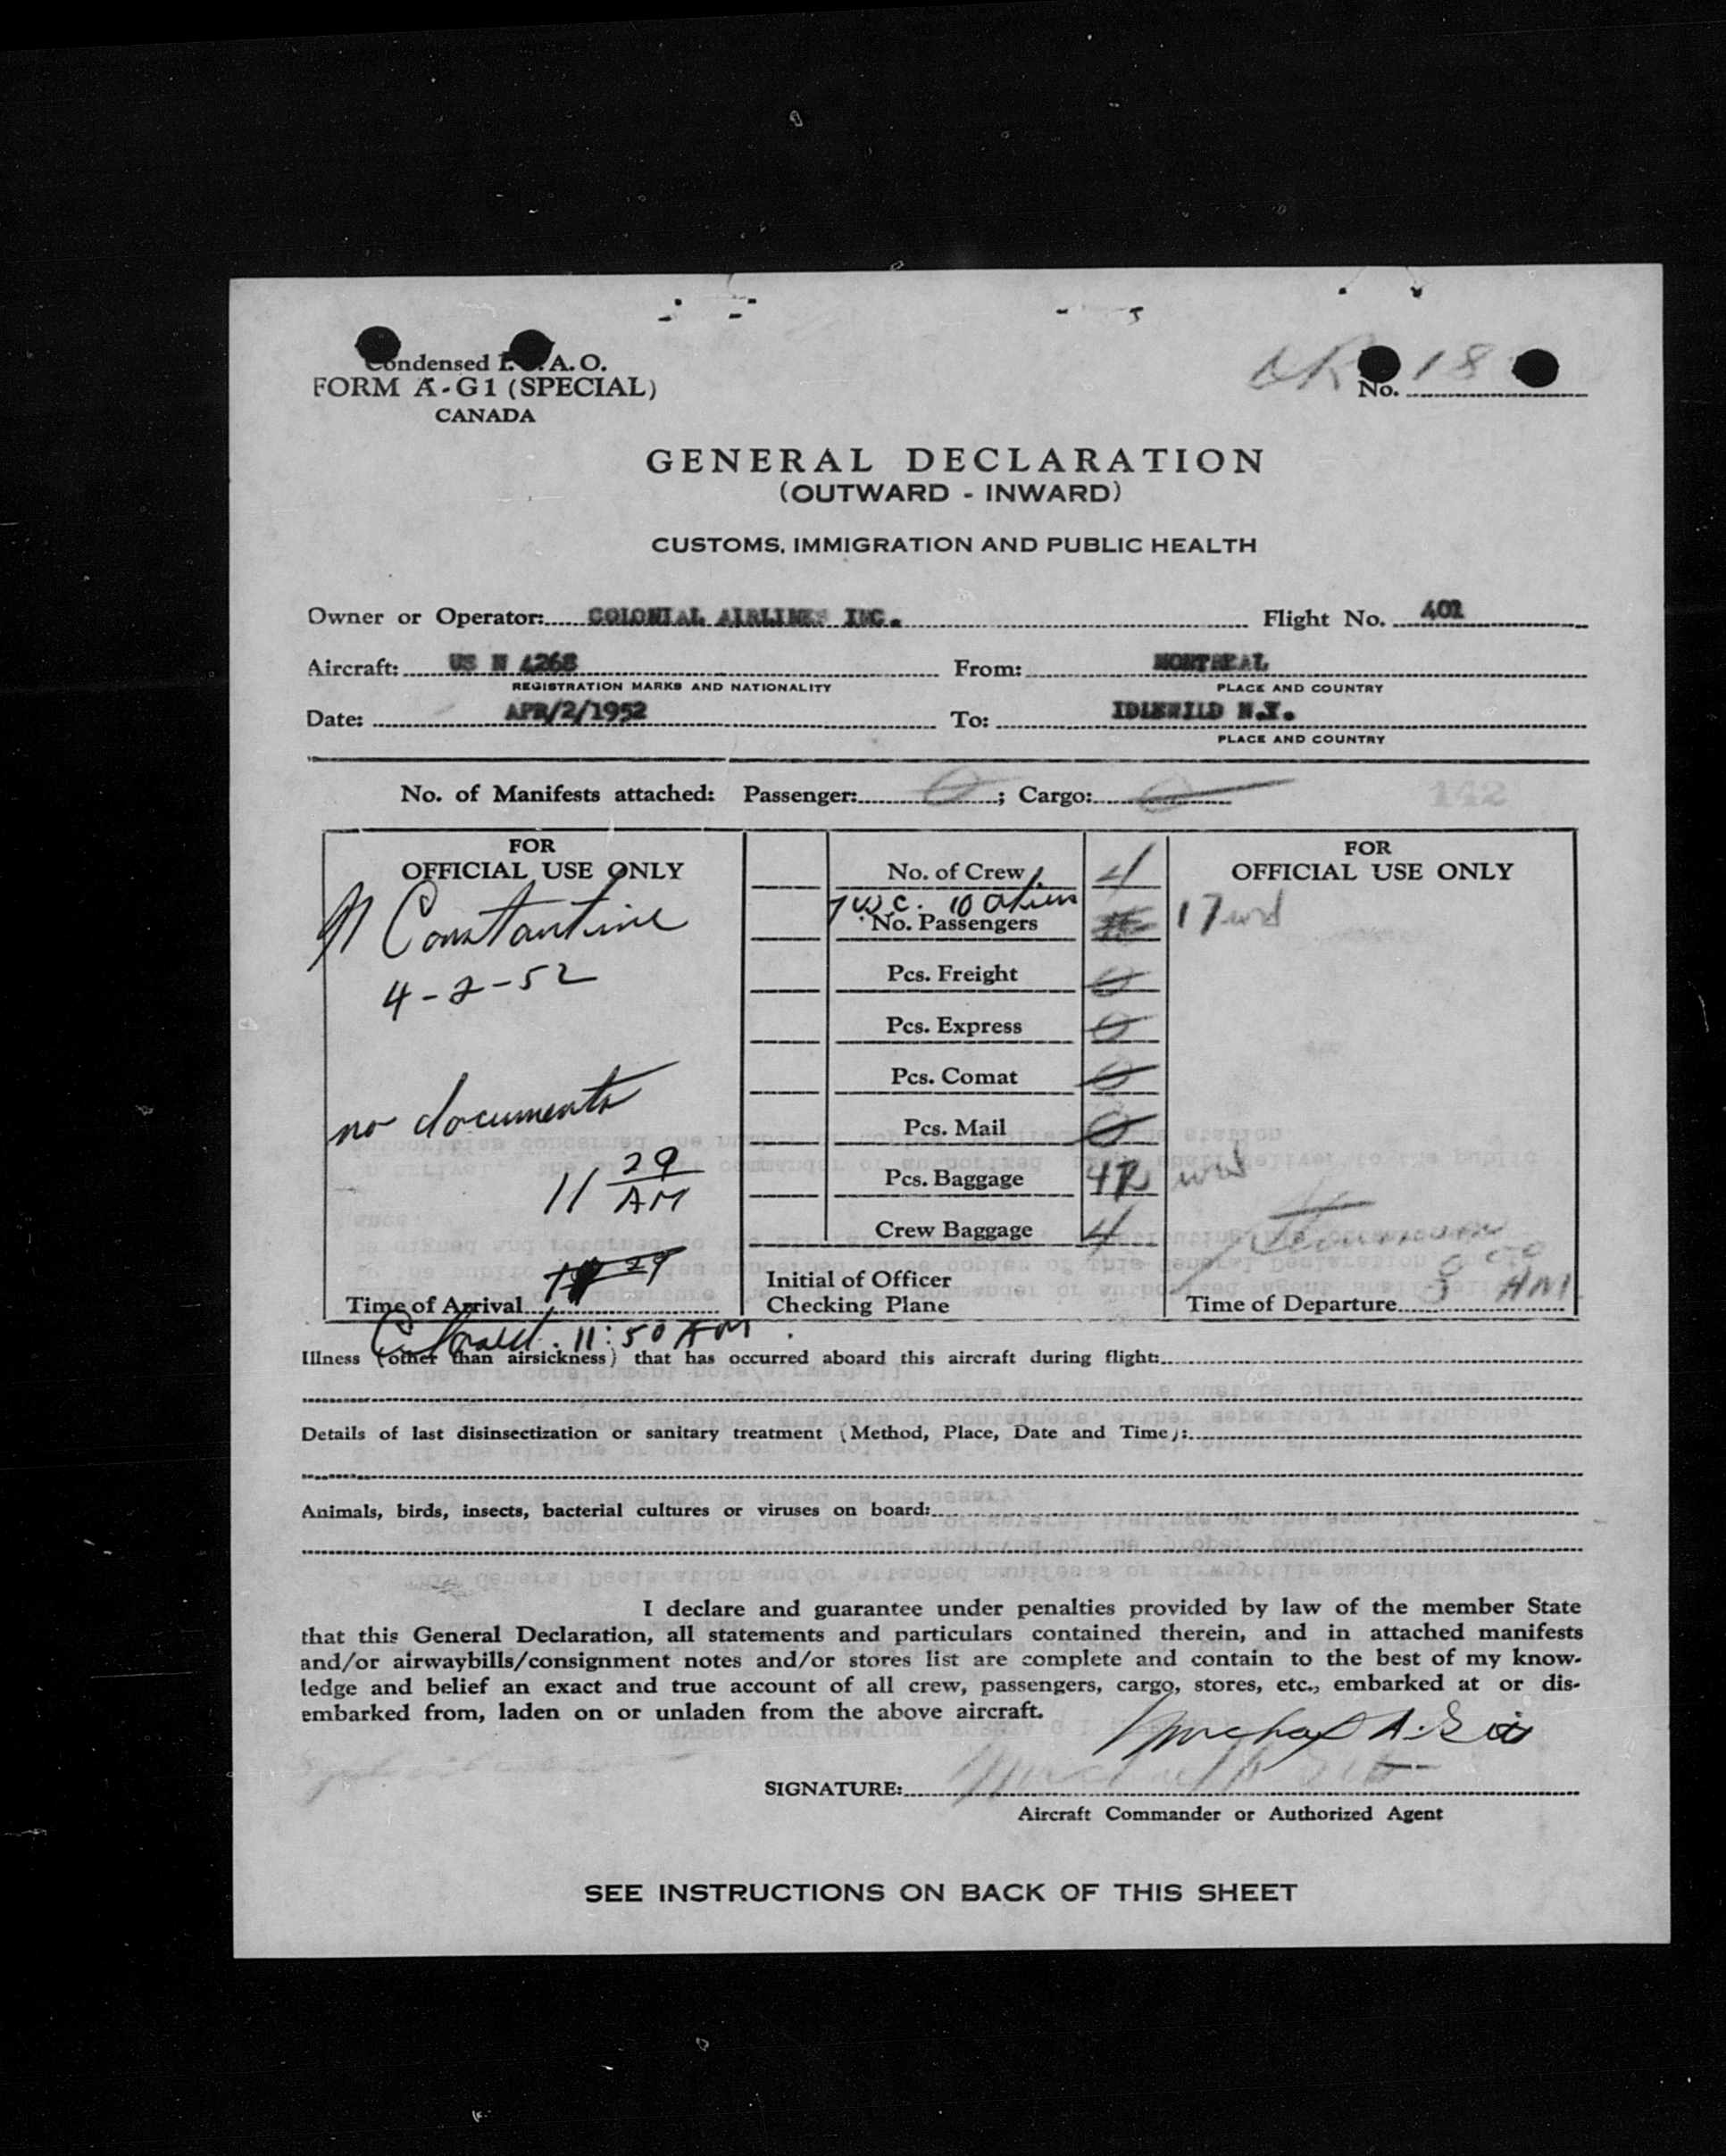 Condensed I. A. O.
FORM A-G1 (SPECIAL)
CANADA
OK No. 18
GENERAL DECLARATION
(OUTWARD - INWARD)
CUSTOMS, IMMIGRATION AND PUBLIC HEALTH
Owner or Operator: COLONIAL AIRLINES INC. Flight No. 402
Aircraft: US N 4268 From: MONTREAL
REGISTRATION MARKS AND NATIONALITY PLACE AND COUNTRY
Date: APR/2/1952 To: IDLEWILD N.Y.
PLACE AND COUNTRY
No. of Manifests attached: Passenger: 0; Cargo: 0
142
FOR
OFFICIAL USE ONLY
N Constantine
4-2-52
no documents
11 29
AM
29
Time of Arrival
No. of Crew 4
7 W.C. 10 aliens
No. Passengers
Pcs. Freight 0
Pcs. Express 0
Pcs. Comat 0
Pcs. Mail 0
Pcs. Baggage
Crew Baggage 4
Initial of Officer
Checking Plane
FOR
OFFICIAL USE ONLY
17
AM
Time of Departure
11:50 AM
Illness (other than airsickness) that has occurred aboard this aircraft during flight:
Details of last disinsectization or sanitary treatment (Method, Place, Date and Time):
Animals, birds, insects, bacterial cultures or viruses on board:
I declare and guarantee under penalties provided by law of the member State
that this General Declaration, all statements and particulars contained therein, and in attached manifests
and/or airwaybills/consignment notes and/or stores list are complete and contain to the best of my know-
ledge and belief an exact and true account of all crew, passengers, cargo, stores, etc., embarked at or dis-
embarked from, laden on or unladen from the above aircraft.
SIGNATURE:
Aircraft Commander or Authorized Agent
SEE INSTRUCTIONS ON BACK OF THIS SHEET